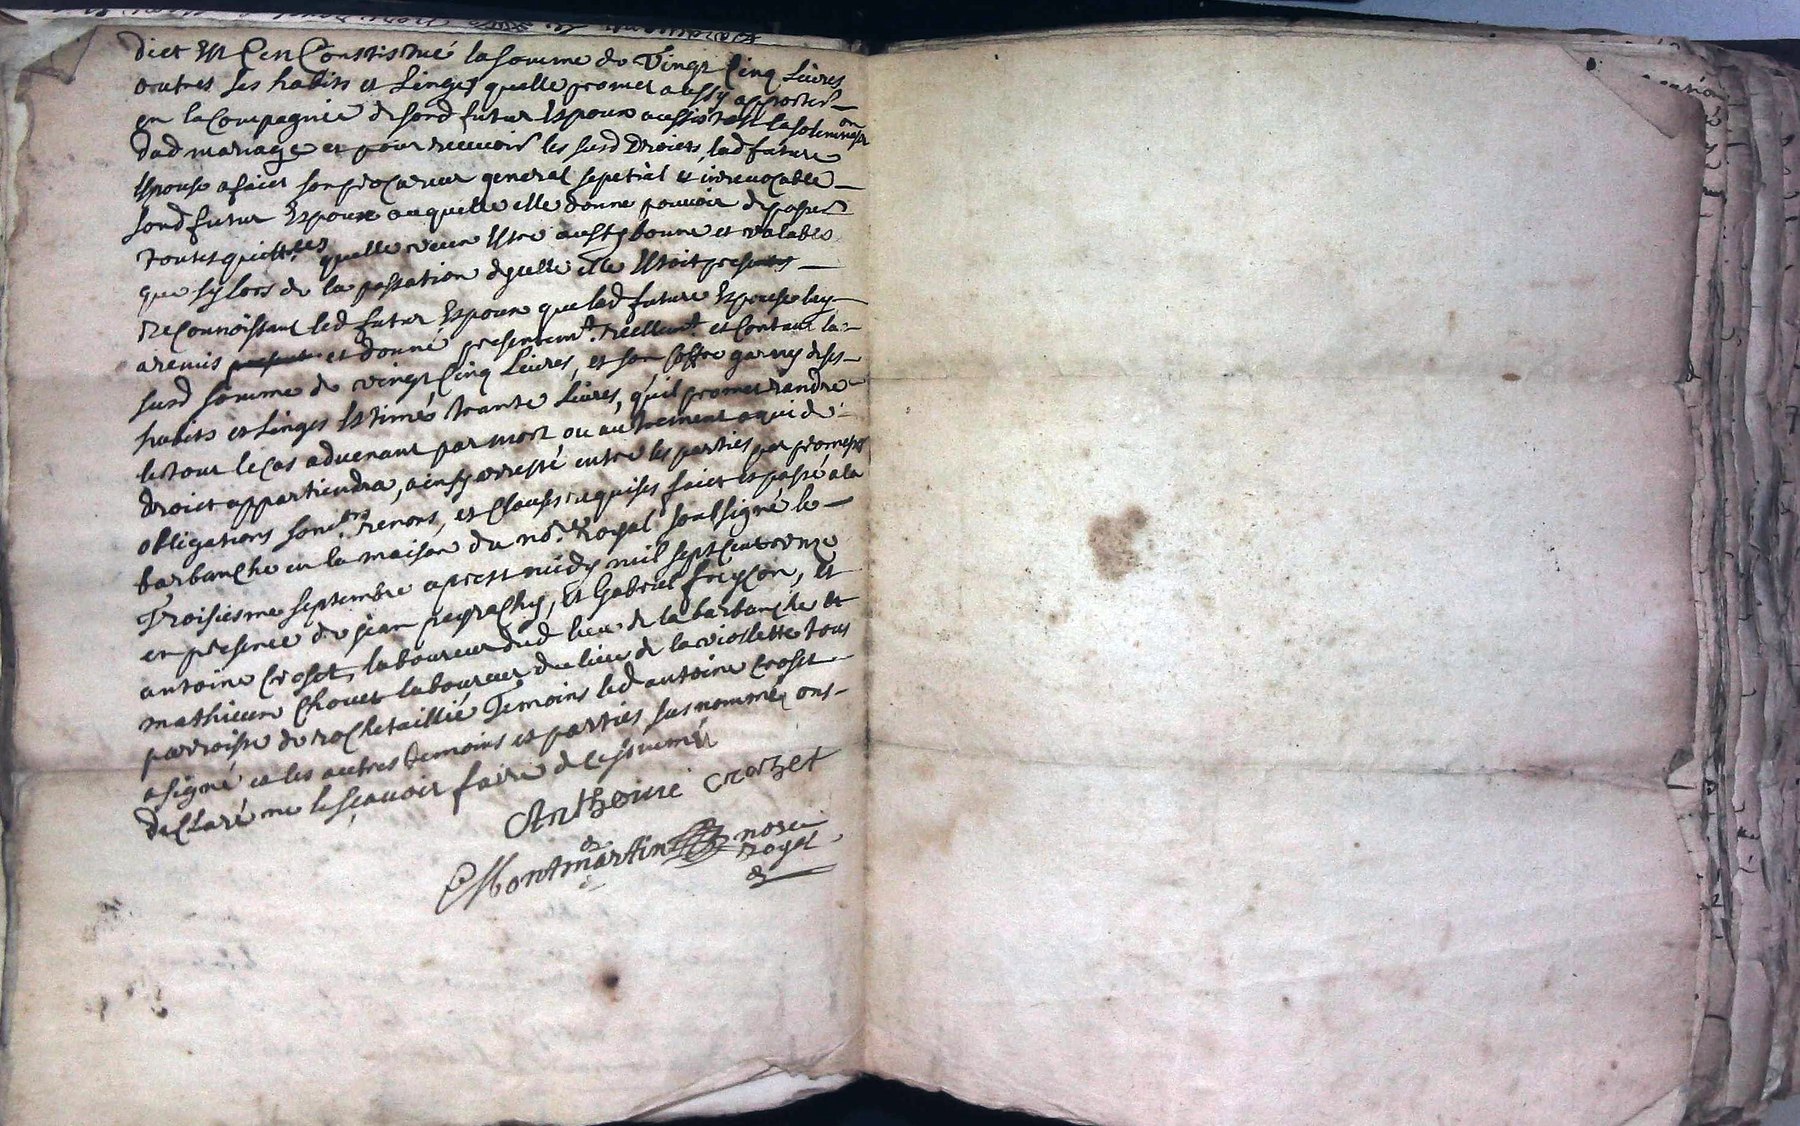 dict Est Cen Constistué la somme de Vingt Cinq Livres
outres ses habits et Linges quelle promet aussy apporter
en la Compagnie de sond futur Espoux aussitost la solemnisaon
dud mariage et pour recevoir les susd Droicts, lad future
Espouse a faict son procureur general sepetial et irrevocable
sond futur Espoux auquelle elle donne pouvoir de passer
toutes quittces quelle veut Estre aussy bonne et valables
que sy lors de la passation dycelle elle Estoit presente
Reconnoissant led futur Espoux que lad future Espouse luy
a remis et donné presentemt réellemt et Contant la
susd somme de vingt Cinq Livres, et son Coffre garny de ses
habits et Linges Estimés trante Livres, qu'il promet randre
le tout le Cas advenant par mort ou autrement a qui de
droict appartiendra, ainsy arresté entre les parties par promesses
obligations renons, et Clauses requises faict et passé a la
barbanche en la maison du nore Royal soubsigné le
Troisiesme septembre apres midy mil sept Cent onze
en presence de jean peyrachy, Et Gabriel Foyçon, et
antoine Croset, laboureur dud lieu de la barbanche et
mathieu Chovet laboureur du lieu de la violette tous
parroisse de rochetaillié Temoins led antoine Croset
a signé et les autres temoins et parties sus nommés ont
declaré ne le sçavoir faire de ce sommés
Anthoine crozet
Montmartin nore
royal